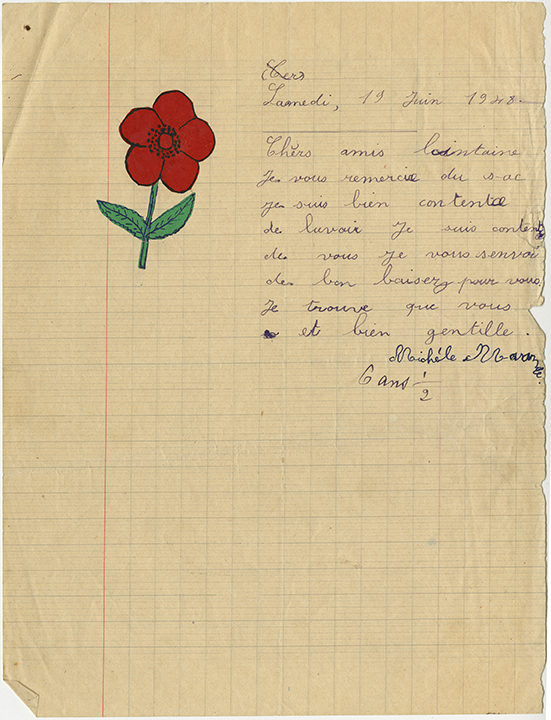 Cers
Samedi, 19 Juin 1948.
Chers amis lointaine
Je vous remercie du sac
je suis bien contente
de lavoir Je suis contente
de vous Je vous senvoi
des bon baisez pour vous
Je trouve que vous
et bien gentille.
Michéle
6 ans 1/2